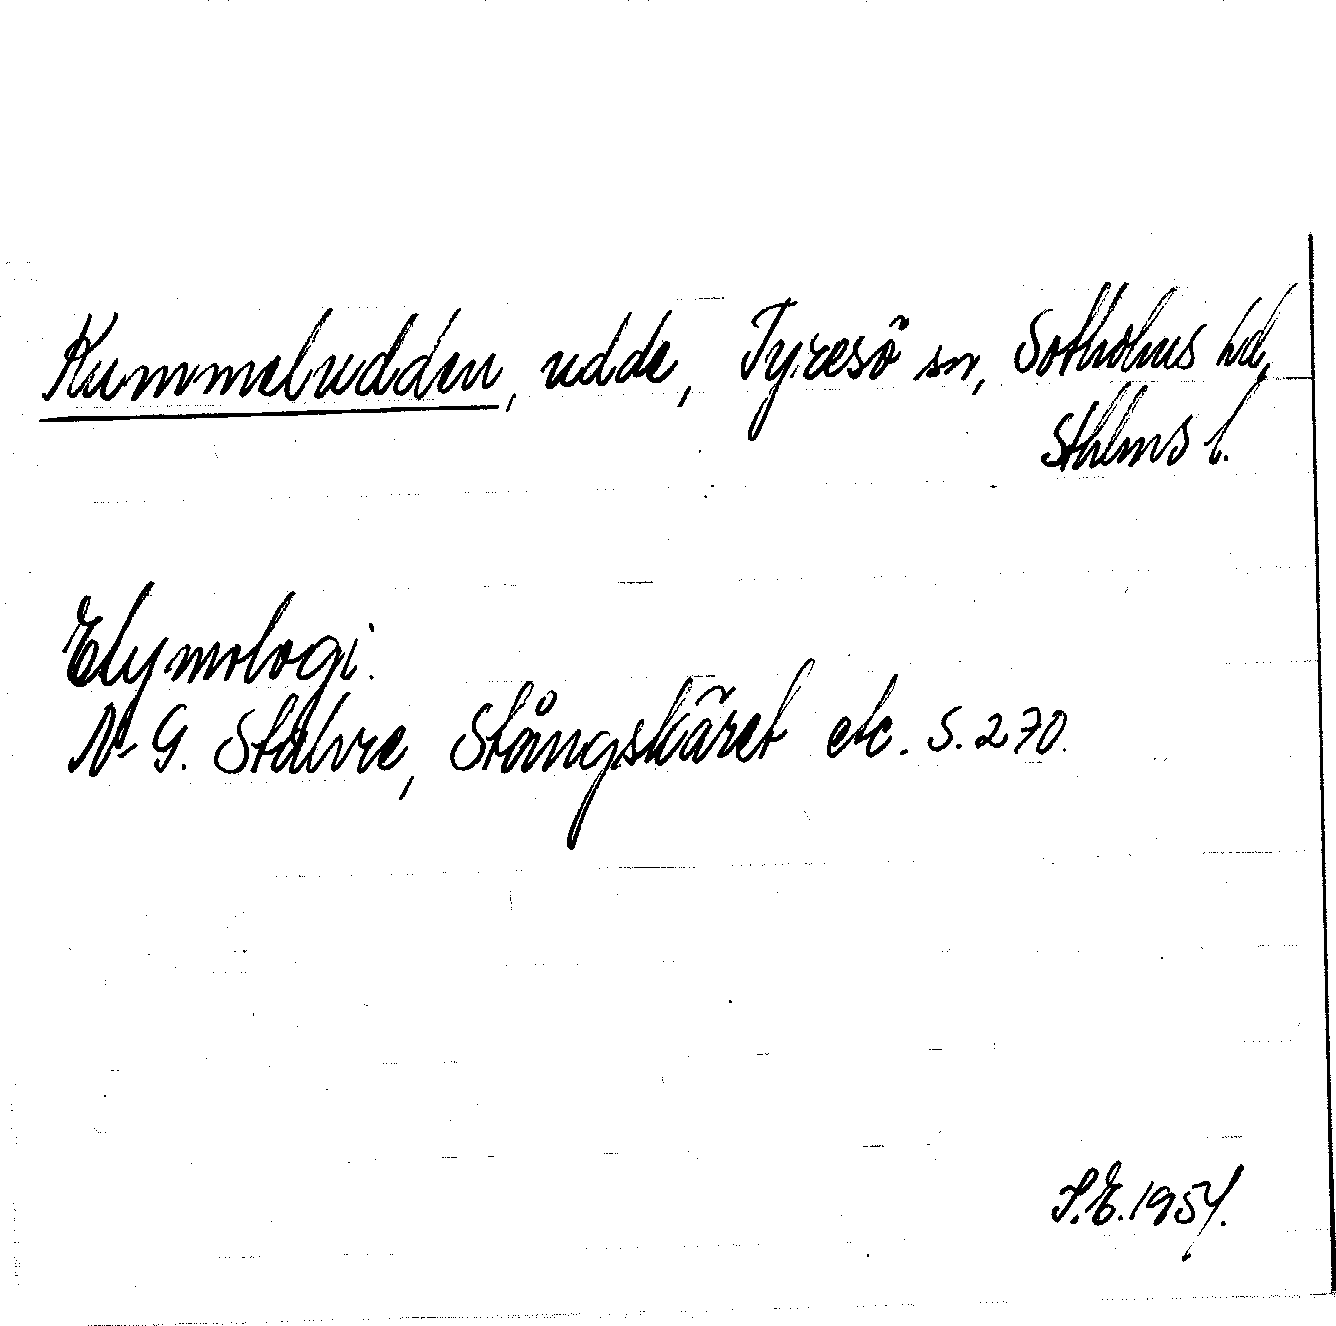 Kummeludden, udde, Tyresö sn, Sotholms hd,
Sthlms l.
Etymologi.
N-G. Stahre, Stångskäret etc. S. 270.
S.E. 1954.